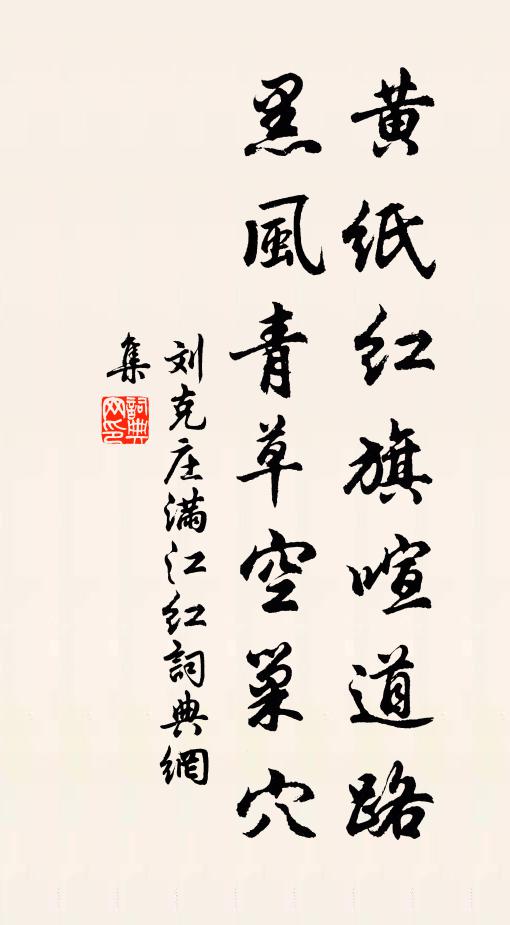 黄紙红旗喧道路
黑風青草空巢穴
刘克庄满江红詞典網
集
詞典网印